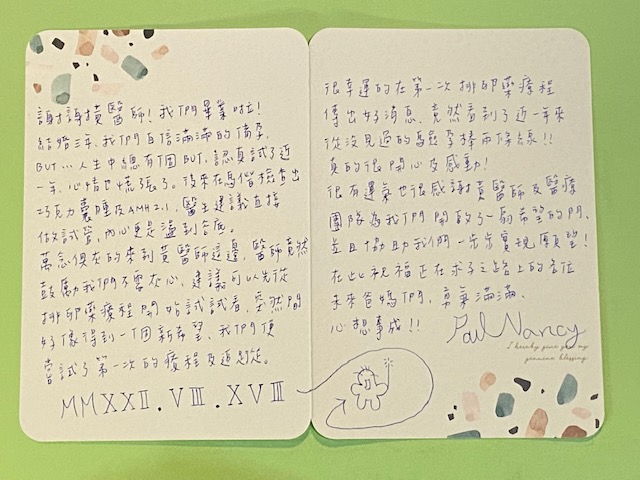 謝謝黃醫師！我們畢業啦！
結婚三年，我們自信滿滿的備孕，
BUT... 人生中總有個BUT，認真試了近
一年，心情也慌張了。後來在馬偕檢查出
巧克力囊腫及AMH 2.1，醫生建議直接
做試管，內心更是盪到谷底。
萬念俱灰的來到黃醫師這邊，醫師竟然
鼓勵我們不需灰心，建議可以先從
排卵藥療程開始試試看，突然間
好像得到一個新希望，我們便
嘗試了第一次的療程及追蹤。
MMXXII.VIII.XVIII
很幸運的在第一次排卵藥療程
傳出好消息，竟然看到了近一年來
從沒見過的驗孕棒兩條線!!
真的很開心及感動！
很有運氣也很感謝黃醫師及醫療
團隊為我們開啟了一扇希望的門，
並且協助我們一步步實現願望！
在此祝福正在求子之路上的各位
未來爸媽們，勇氣滿滿、
心想事成!!
Paul Nancy
I hereby give you my
genuine blessing.